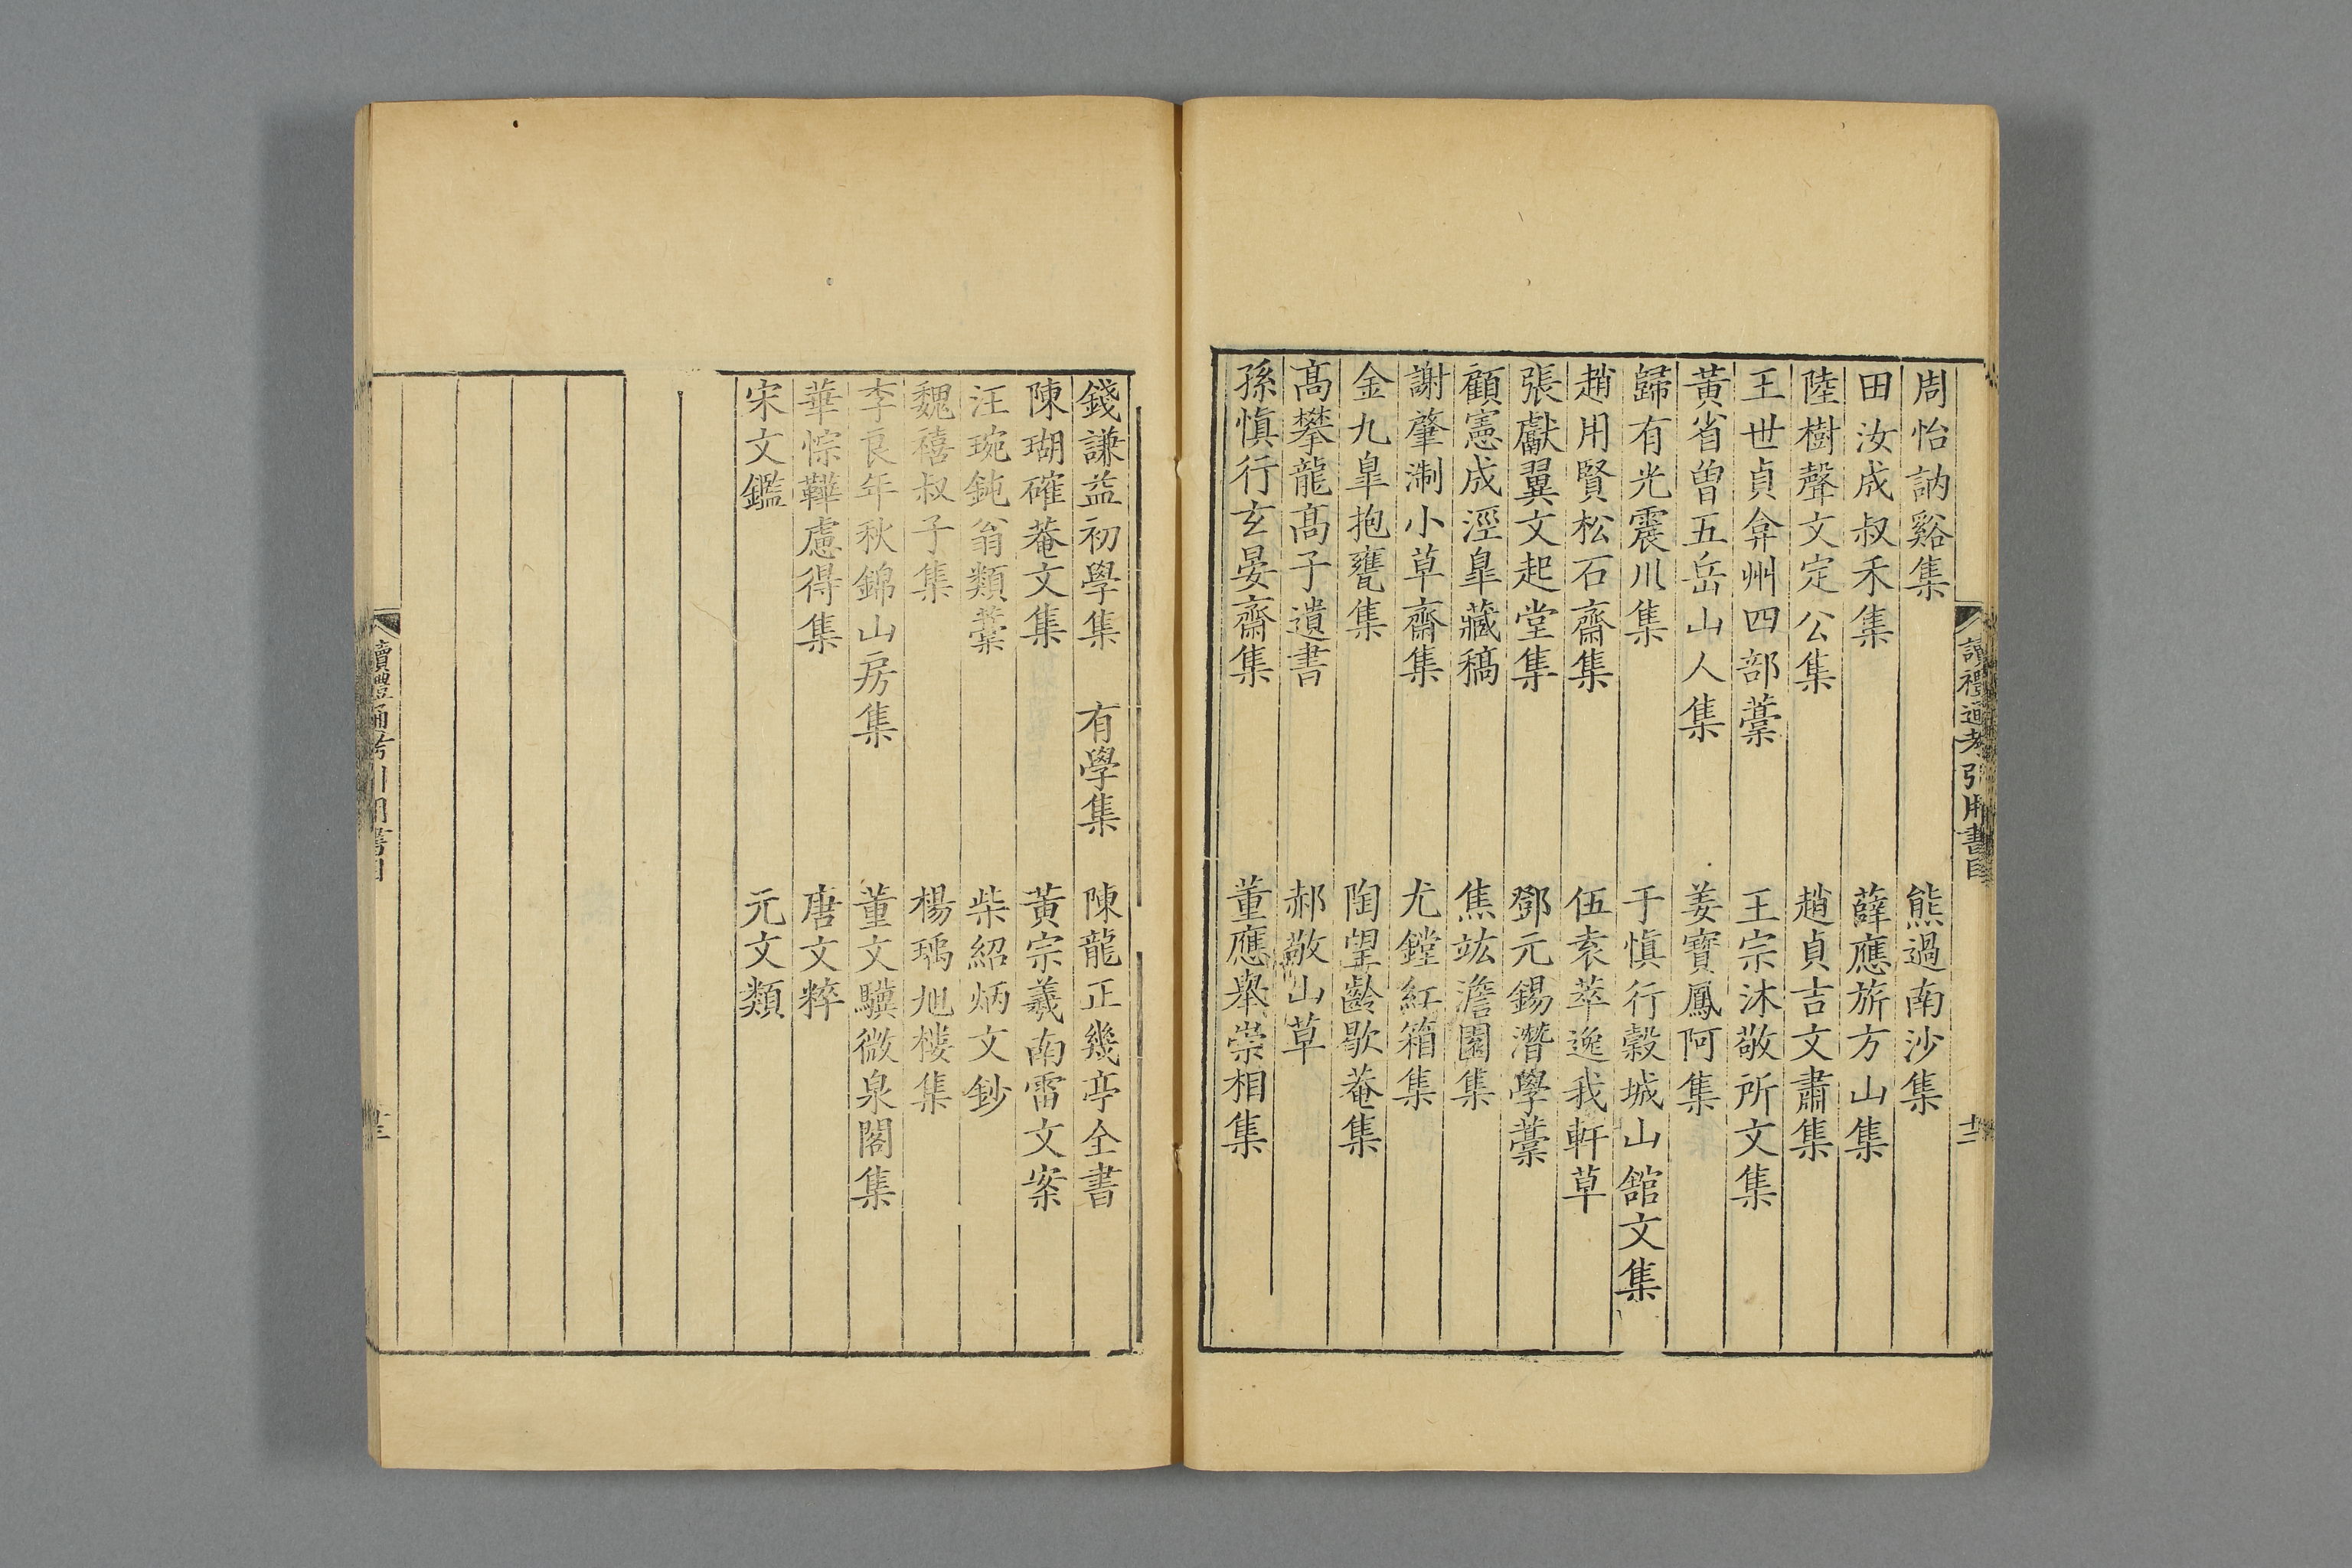 周怡訥谿集 熊過南沙集
田汝成叔禾集 薛應旂方山集
陸樹聲文定公集 趙貞吉文肅集
王世貞弇州四部藳 王宗沐敬所文集
黃省曾五岳山人集 姜寶鳳阿集
歸有光震川集 于愼行穀城山館文集
趙用賢松石齋集 伍袁萃逸我軒草
張獻翼文起堂集 鄧元錫潛學藳
顧憲成涇臯藏稿 焦竑澹園集
謝肇淛小草齋集 尤鏜紅箱集
金九臯抱甕集 陶望齡歇菴集
髙攀龍髙子遺書 郝敬山草
孫愼行玄晏齋集 董應舉崇相集
讀禮通考引用書目 十二
錢謙益初學集 有學集 陳龍正幾亭全書
陳瑚確菴文集 黃宗羲南雷文案
汪琬鈍翁類藳 柴紹炳文鈔
魏禧叔子集 楊瑀旭樓集
李良年秋錦山房集 董文驥微泉閣集
華悰韡慮得集 唐文粹
宋文鑑 元文類
讀禮通考引用書目